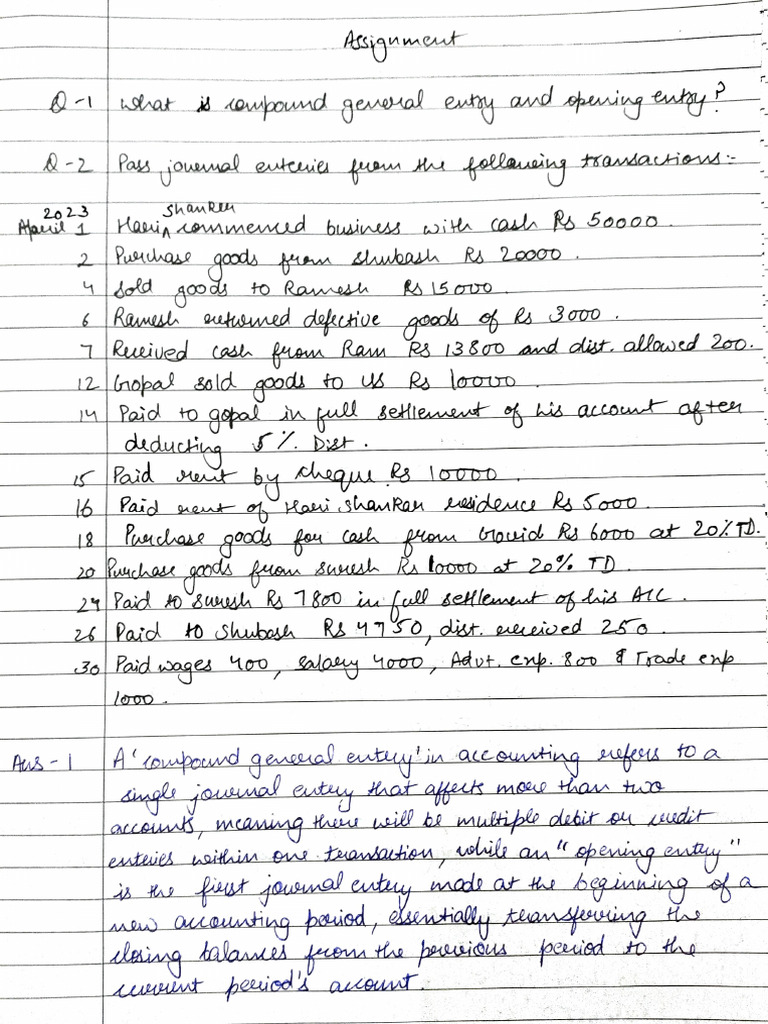 Assignment
Q-1 What is compound general entry and opening entry?
Q-2 Pass journal enteries from the following transactions:-
2023 Shanker
April 1 Hari ^ commenced business with cash Rs 50000.
2 Purchase goods from Shubash Rs 20000.
4 Sold goods to Ramesh Rs 15000.
6 Ramesh returned defective goods of Rs 3000.
7 Received cash from Ram Rs 13800 and dist. allowed 200.
12 Gopal sold goods to us Rs 10000.
14 Paid to gopal in full settlement of his account after
deducting 5% Dist.
15 Paid rent by cheque Rs 10000.
16 Paid rent of Hari Shankar residence Rs 5000.
18 Purchase goods for cash from Govid Rs 6000 at 20% TD.
20 Purchase goods from Suresh Rs 10000 at 20% TD.
24 Paid to Suresh Rs 7800 in full settlement of his A/C.
26 Paid to Shubash Rs 4750, dist. received 250.
30 Paid wages 400, salary 4000, Advt. exp. 800 & Trade exp
1000.
Ans-1 A 'compound general entry' in accounting refers to a
single journal entry that affects more than two
accounts, meaning there will be multiple debit or credit
enteries within one transaction, while an "opening entry"
is the first journal entry made at the beginning of a
new accounting period, essentially transferring the
closing balances from the previous period to the
current period's account.